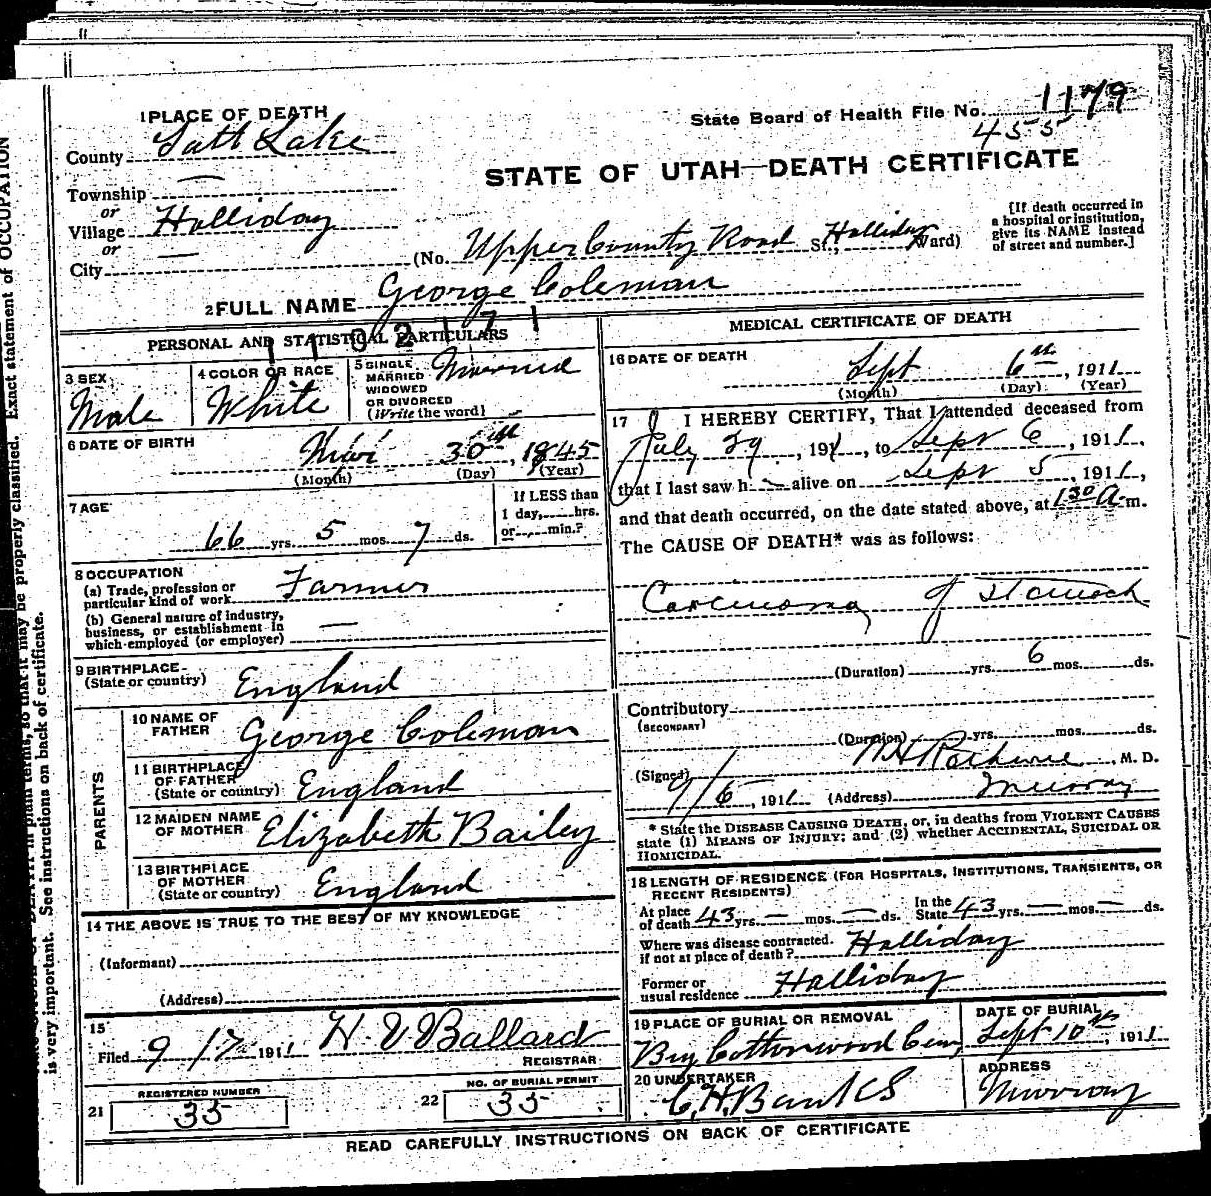 1 PLACE OF DEATH
County Salt Lake
Township —
or
Village Holliday
or
City —
State Board of Health File No. 1179
455
STATE OF UTAH—DEATH CERTIFICATE
(No. Upper County Road St., Holliday Ward)
[If death occurred in
a hospital or institution,
give its NAME instead
of street and number.]
2 FULL NAME George Coleman
1102171
PERSONAL AND STATISTICAL PARTICULARS
3 SEX
Male
4 COLOR OR RACE
White
5 SINGLE
MARRIED
WIDOWED
OR DIVORCED
(Write the word)
Married
6 DATE OF BIRTH
30th, 1845
(Month) (Day) (Year)
7 AGE
66 yrs. 5 mos. 7 ds.
If LESS than
1 day, hrs.
or min.?
8 OCCUPATION
(a) Trade, profession or
particular kind of work Farmer
(b) General nature of industry,
business, or establishment in
which employed (or employer) —
9 BIRTHPLACE
(State or country) England
PARENTS
10 NAME OF
FATHER George Coleman
11 BIRTHPLACE
OF FATHER
(State or country) England
12 MAIDEN NAME
OF MOTHER Elizabeth Bailey
13 BIRTHPLACE
OF MOTHER
(State or country) England
14 THE ABOVE IS TRUE TO THE BEST OF MY KNOWLEDGE
(Informant)
(Address)
15
Filed 9/17 1911 H. V Ballard
REGISTRAR
21 REGISTERED NUMBER
33
22 NO. OF BURIAL PERMIT
33
MEDICAL CERTIFICATE OF DEATH
16 DATE OF DEATH
Sept 6th, 1911
(Month) (Day) (Year)
17 I HEREBY CERTIFY, That I attended deceased from
July 29, 191 , to Sept 6, 1911,
that I last saw h alive on Sept 5, 1911,
and that death occurred, on the date stated above, at 1 30 A. m.
The CAUSE OF DEATH* was as follows:
Carcinoma of Stomach
(Duration) yrs. 6 mos. ds.
Contributory
(SECONDARY)
(Duration) yrs. mos. ds.
(Signed) M. D.
9/6, 1911 (Address) Murray
* State the DISEASE CAUSING DEATH, or, in deaths from VIOLENT CAUSES
state (1) MEANS OF INJURY; and (2) whether ACCIDENTAL, SUICIDAL OR
HOMICIDAL.
18 LENGTH OF RESIDENCE (FOR HOSPITALS, INSTITUTIONS, TRANSIENTS, OR
RECENT RESIDENTS)
At place
of death 43 yrs. — mos. — ds.
In the
State 43 yrs. — mos. — ds.
Where was disease contracted.
if not at place of death? Holliday
Former or
usual residence Holliday
19 PLACE OF BURIAL OR REMOVAL
Big Cottonwood Cem.
DATE OF BURIAL
Sept 10th, 1911
20 UNDERTAKER
C. H. Banks
ADDRESS
Murray
READ CAREFULLY INSTRUCTIONS ON BACK OF CERTIFICATE
in plain terms, so that it may be properly classified. Exact statement of OCCUPATION
is very important. See instructions on back of certificate.